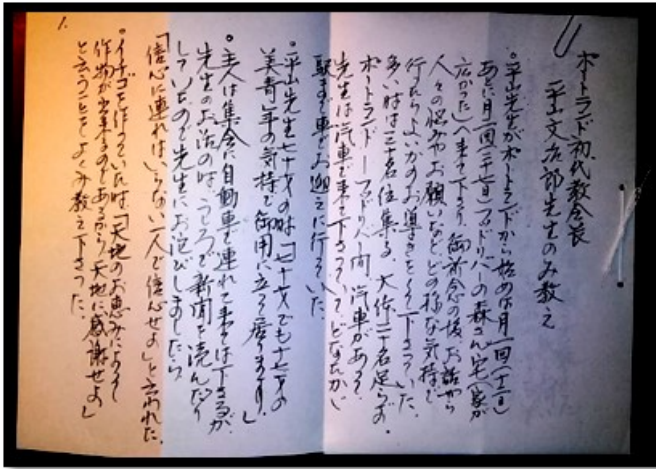 1.
ポートランド初代教会長
平山文治郎先生のみ教え
。平山先生がポートランドから始めは月一回(十二日)
あとに月二回(二十七日)フッドリバーの森さん宅(家が
広かった)へ来て下さり、御祈念の後、お話から
人々の悩みやお願いなど、どの様な気持で
行たらよいかのお導きをして下さっていた。
多い時は三十名位集る、大体二十名足らず。
ポートランドーフッドリバー間、汽車があって
先生は汽車で来て下さっていて、どなたかが
駅まで車でお迎えに行っていた。
。平山先生七十才の時「七十才でも十七才の
美青年の気持で御用に立って居ります。」
。主人は集会に自動車で連れて来ては下さるが、
先生のお話のは、うしろで新聞を読んだり
していたので先生にお詫びしましたら
「信心に連れはいらない一人で信心せよ」と言われた。
。イチゴを作っていた時、「天地のお恵みによって
作物が出来るのであるから天地に感謝せよ」
と云うことをよくみ教え下さった。